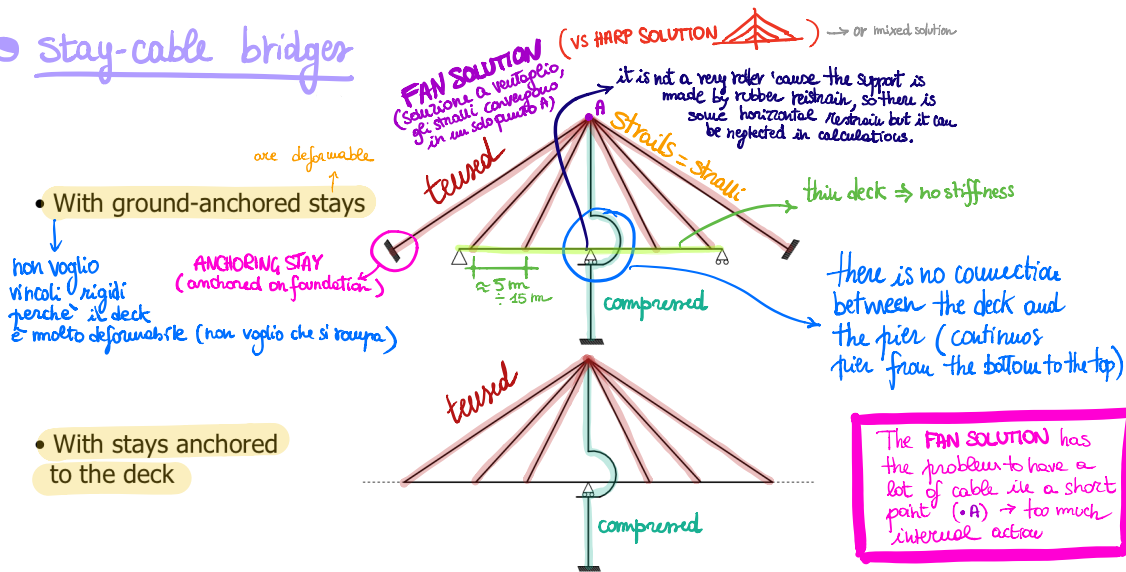 stay-cable bridges
FAN SOLUTION
(soluzione a ventaglio,
gli stralli convergono
in un solo punto A)
(VS HARP SOLUTION
) → or mixed solution
it is not a very roller 'cause the support is
made by rubber reistrain, so there is
some horizontal restrain but it can
be neglected in calculations.
A
strails = stralli
teused
are deformable
• With ground-anchored stays
thin deck ⇒ no stiffness
non voglio
vincoli rigidi
perchè il deck
è molto deformabile (non voglio che si rompa)
ANCHORING STAY
(anchored on foundation)
≈ 5 m
÷ 15 m
compressed
there is no connection
between the deck and
the pier (continuos
pier from the bottom to the top)
teused
• With stays anchored
to the deck
compressed
The FAN SOLUTION has
the problem to have a
lot of cable in a short
point (•A) → too much
internal action